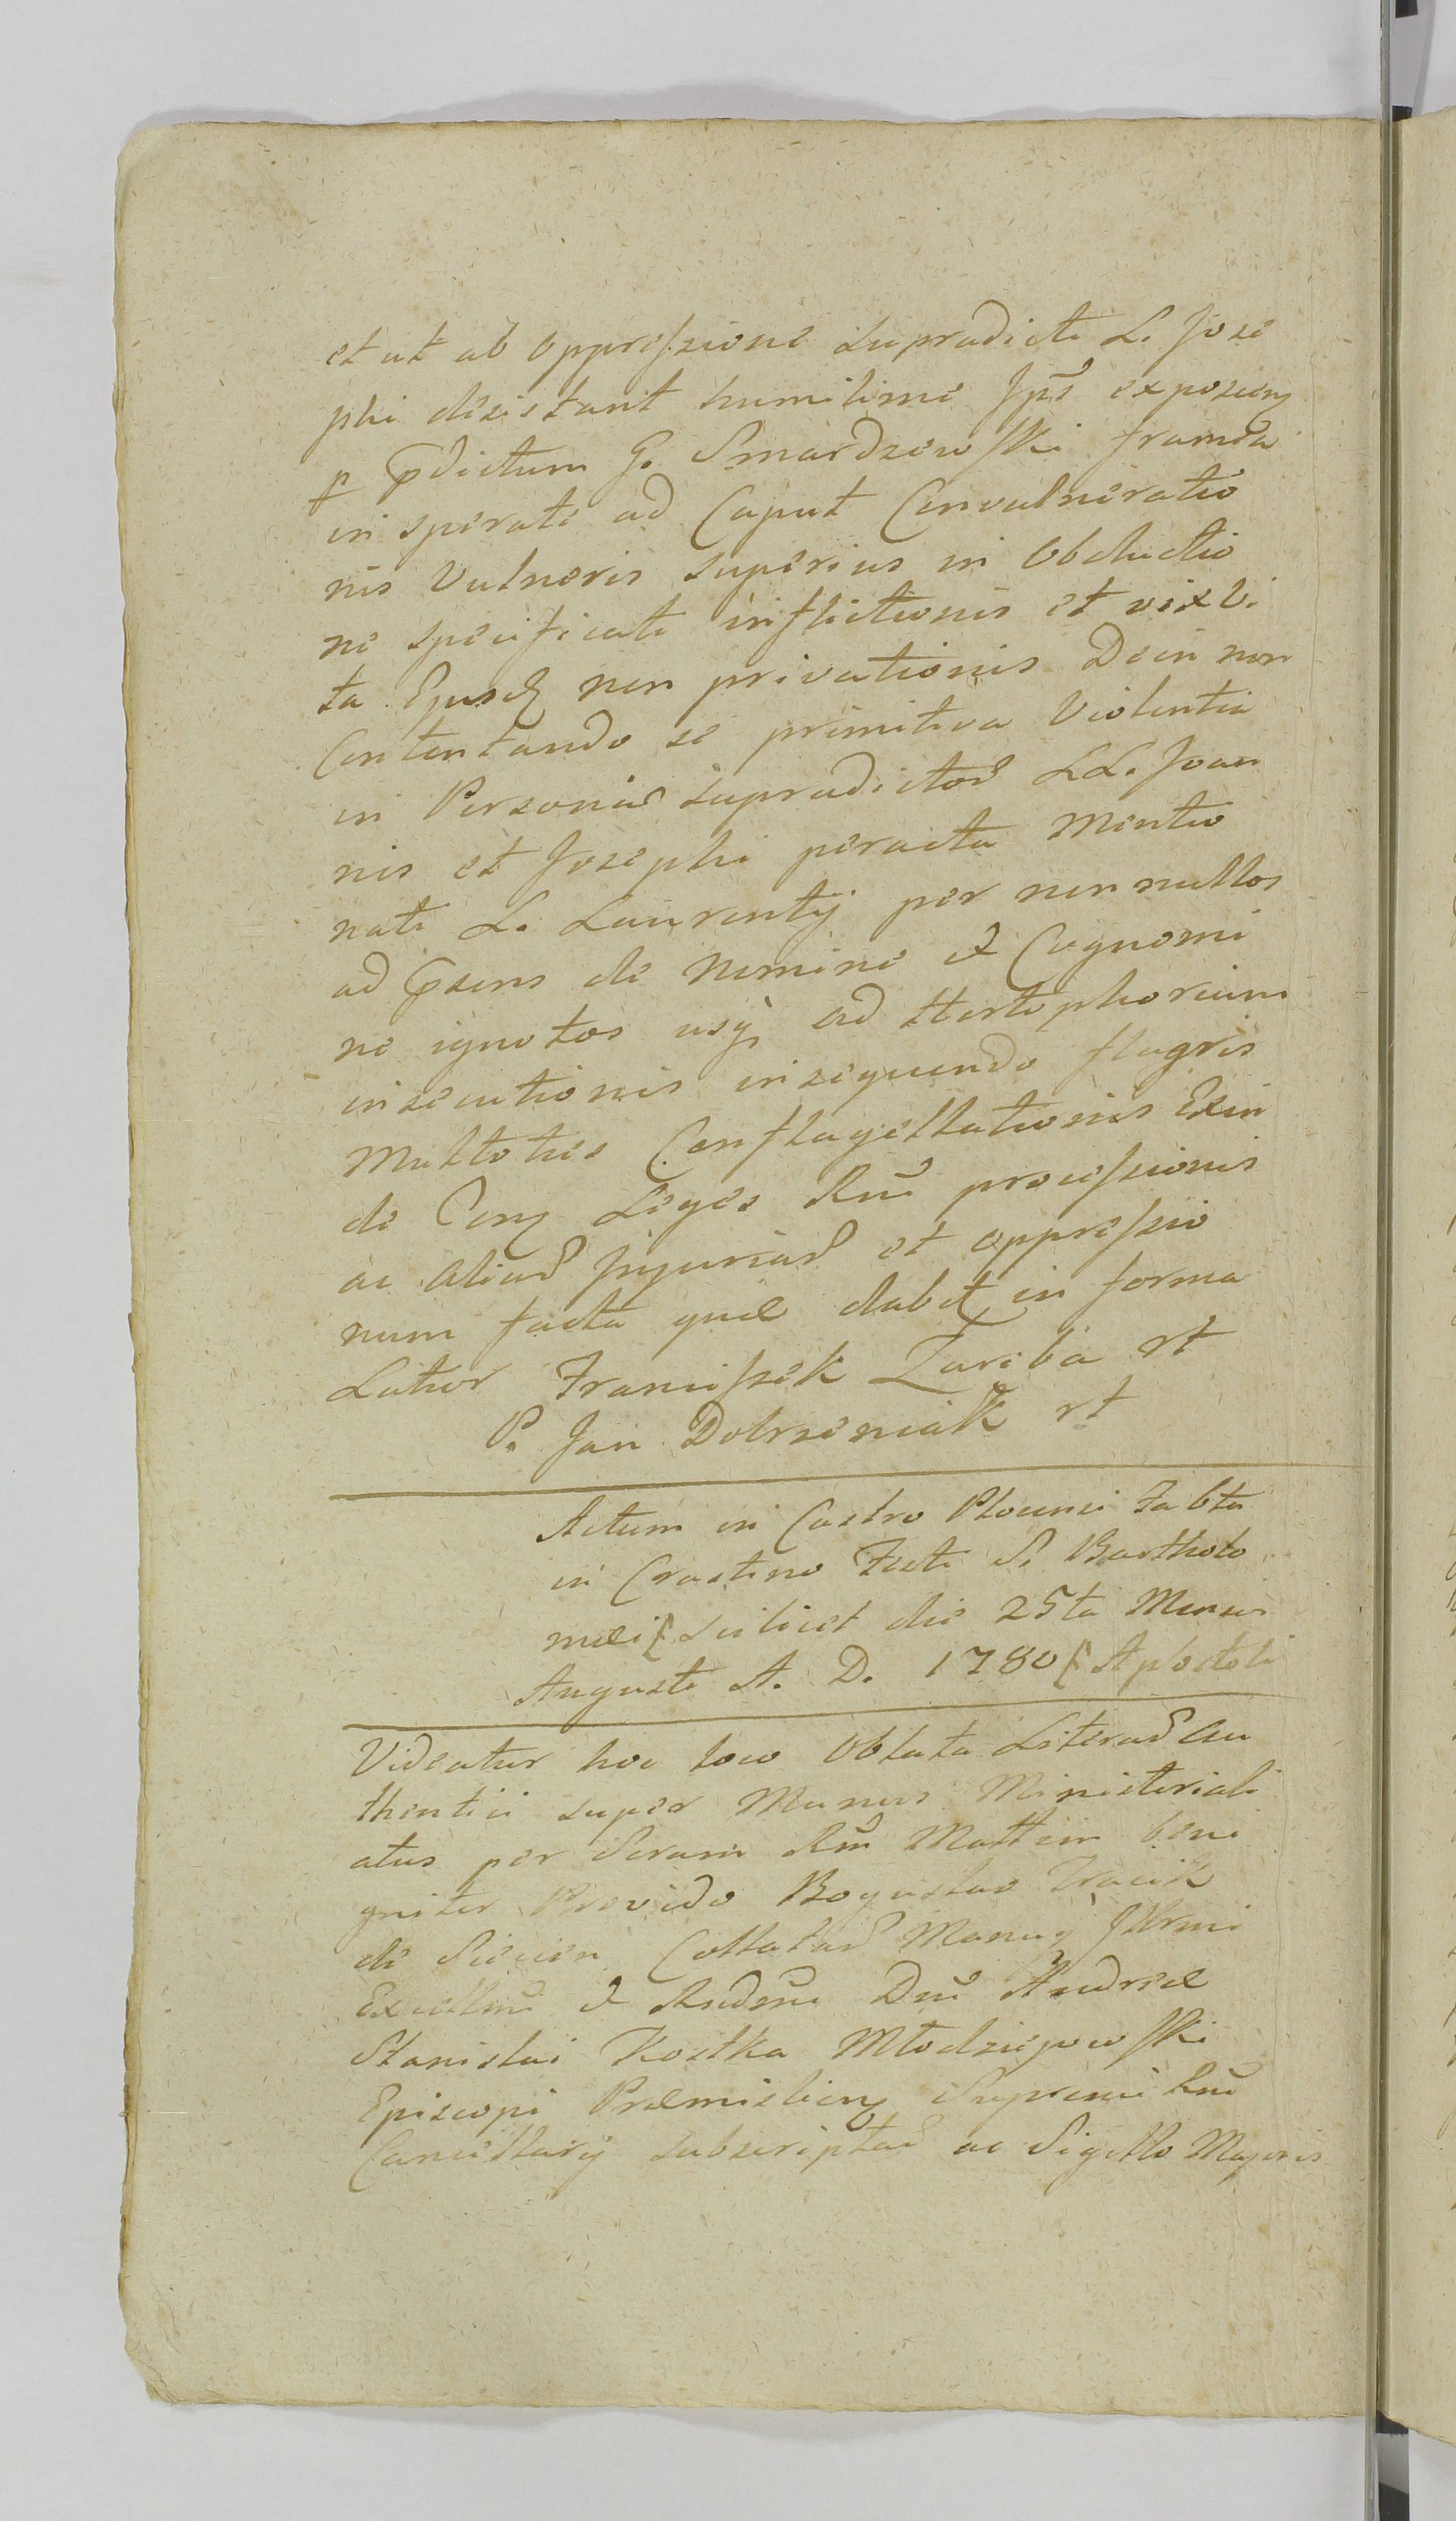 et ut ab oppressione supradicti L. Jose
phi desistant humilime Jpsi exposcens
p pdictum G. Smardzewski framea
in sperate ad Caput Convulneratio
nis Vulneris superius in Obductio
ne specificati inflictionis et vix vi
ta Ejusdem non privationis Dein non
Contentando se primitiva Violentia
in Personis supradictor LL. Joan
nis et Josephi peracta Mentio
nati L. Laurentij per non nullos
ad psens de Nomine et Cognomi
ne ignotos usq ad
insecutionis insequendo flagris
Multoties Conflagellationis Exin
de Cons Leges Rni processionis
ac aliar Jnjuriar et oppressio
num facta quæ dabit in forma
Lator Franciszek Zaręba rt
P. Jan Dobrzeniak rt
Actum in Castro Plocensi Sabbto
in Crastino Festi S. Bartholo
mæi scilicet die 25ta Mensis
Augusti A. D. 1780 Apostoli
Videatur hoc loco Oblata Literar Au
thentici super Munus Ministeriali
atus per Seram Rm Mattem beni
gniter Provido Boguslao Fracik
de Siecien Collatar Manu Jllrmi
Excellmi et Rndmi Dni Andreæ
Stanislai Kostka Młodziejowski
Episcopi Præmislien Supremi Rni
Cancellarij subscriptar ac Sigillo Majoris